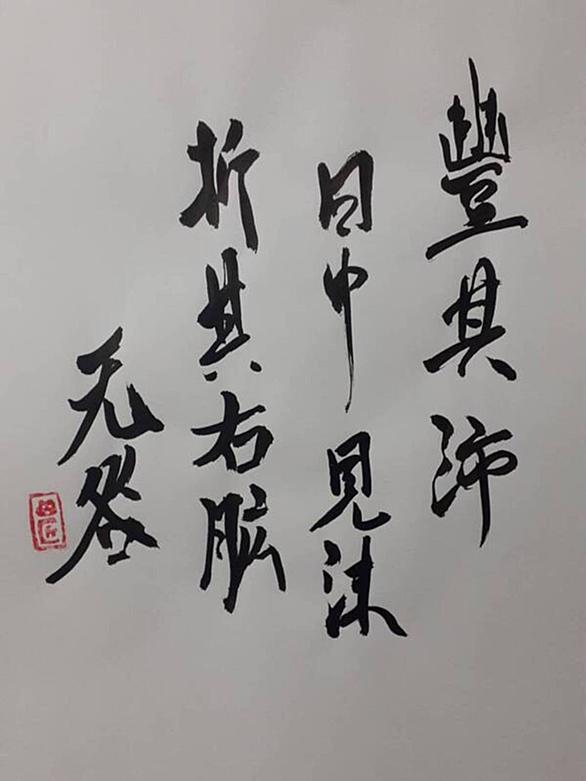 豐其沛
日中見沬
折其右肱
无咎